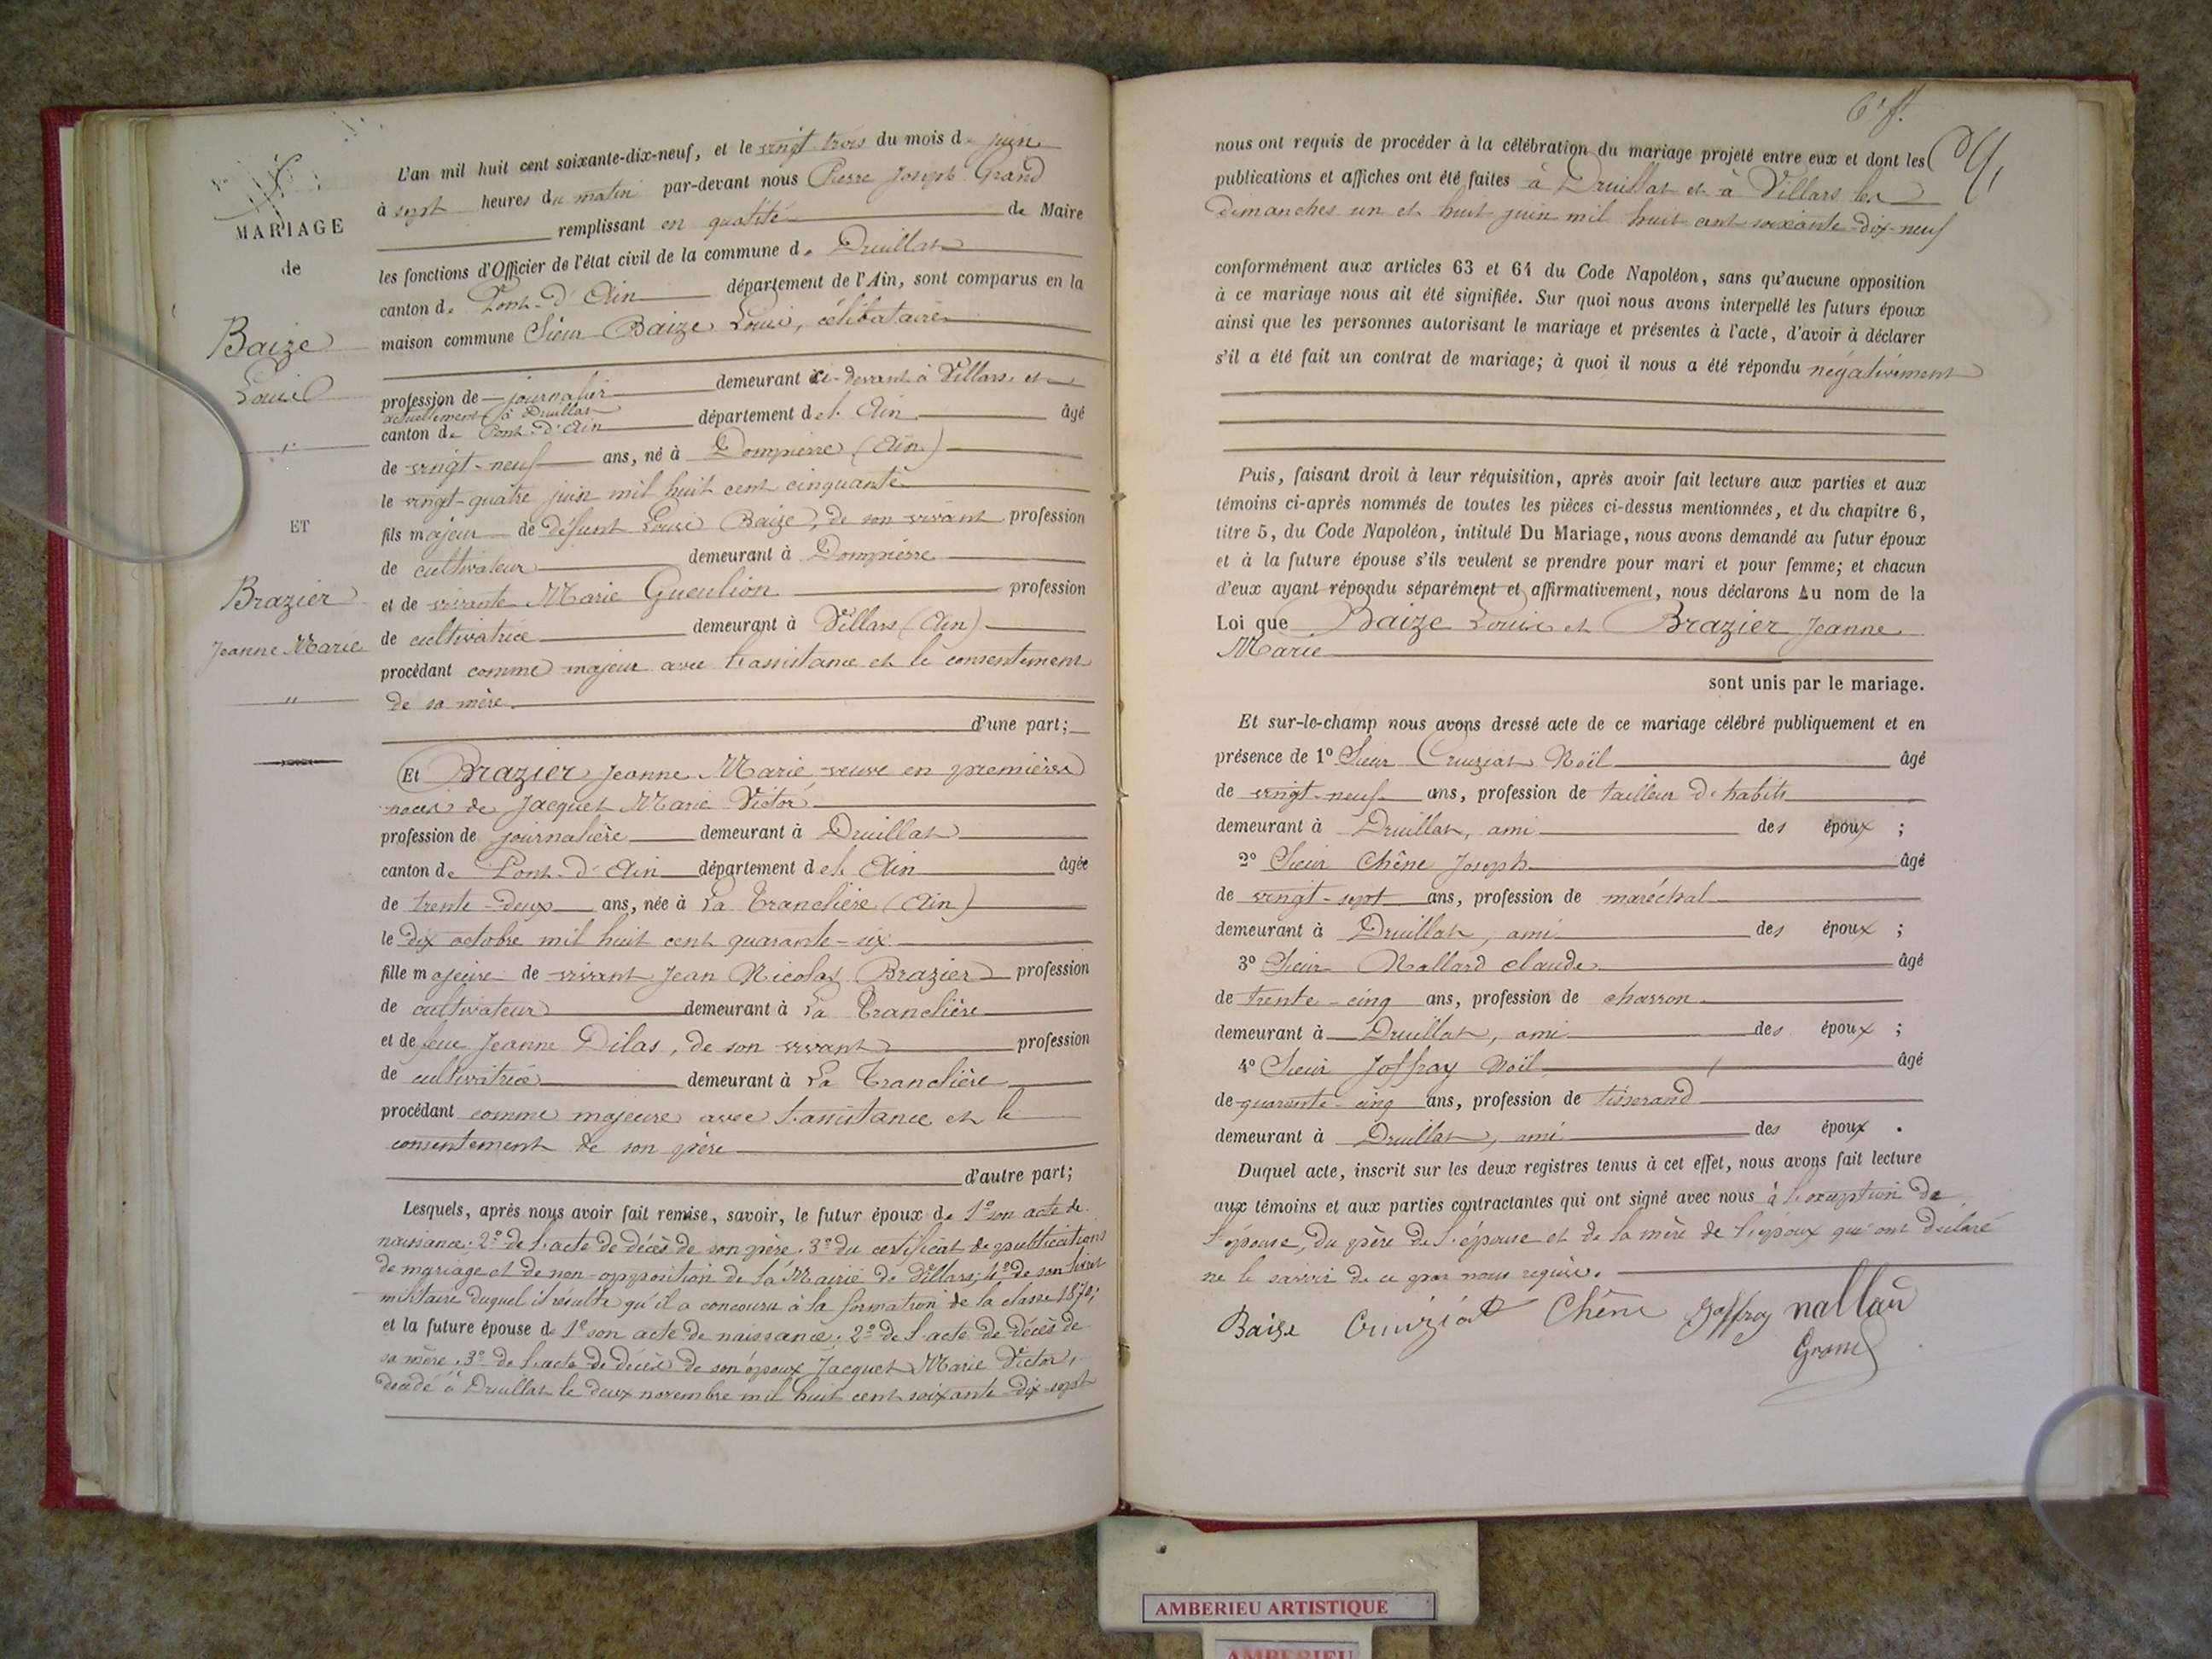 MARIAGE
de
Baize
Louis
ET
Brazier
Jeanne Marie
L'an mil huit cent soixante-dix-neuf, et le vingt-trois du mois de juin
à sept heures du matin par-devant nous Pierre Joseph Grand
remplissant en qualité de Maire
les fonctions d'Officier de l'état civil de la commune de Druillat
canton de Pont-d'Ain département de l'Ain, sont comparus en la
maison commune Sieur Baize Louis, célibataire
profession de journalier demeurant ci-devant à Villars et
actuellement à Druillat
canton de Pont-d'Ain département de l'Ain âgé
de vingt-neuf ans, né à Dompierre (Ain)
le vingt-quatre juin mil huit cent cinquante
fils majeur de défunt Louis Baize, de son vivant profession
de cultivateur demeurant à Dompierre
et de vivante Marie Gueulion profession
de cultivatrice demeurant à Villars (Ain)
procédant comme majeur avec l'assistance et le consentement
de sa mère.
d'une part;
Et Brazier Jeanne Marie veuve en premières
noces de Jacquet Marie Victor
profession de journalière demeurant à Druillat
canton de Pont-d'Ain département de l'Ain âgée
de trente-deux ans, née à La Tranclière (Ain)
le dix octobre mil huit cent quarante-six
fille majeure de vivant Jean Nicolas Brazier profession
de cultivateur demeurant à La Tranclière
et de feue Jeanne Dilas, de son vivant profession
de cultivatrice demeurant à La Tranclière
procédant comme majeure avec l'assistance et le
consentement de son père
d'autre part;
Lesquels, après nous avoir fait remise, savoir, le futur époux de 1º son acte de
naissance. 2º de l'acte de décès de son père. 3º du certificat de publications
de mariage et de non-opposition de la Mairie de Villars; 4º de son livret
militaire duquel il résulte qu'il a concouru à la formation de la classe 1870;
et la future épouse de 1º son acte de naissance. 2º de l'acte de décès de
sa mère. 3º de l'acte de décès de son époux Jacquet Marie Victor,
décédé à Druillat le deux novembre mil huit cent soixante-dix-sept
6e f.
nous ont requis de procéder à la célébration du mariage projeté entre eux et dont les
publications et affiches ont été faites à Druillat et à Villars les
dimanches un et huit juin mil huit cent soixante-dix-neuf
conformément aux articles 63 et 64 du Code Napoléon, sans qu'aucune opposition
à ce mariage nous ait été signifiée. Sur quoi nous avons interpellé les futurs époux
ainsi que les personnes autorisant le mariage et présentes à l'acte, d'avoir à déclarer
s'il a été fait un contrat de mariage; à quoi il nous a été répondu négativement
Puis, faisant droit à leur réquisition, après avoir fait lecture aux parties et aux
témoins ci-après nommés de toutes les pièces ci-dessus mentionnées, et du chapitre 6,
titre 5, du Code Napoléon, intitulé Du Mariage, nous avons demandé au futur époux
et à la future épouse s'ils veulent se prendre pour mari et pour femme; et chacun
d'eux ayant répondu séparément et affirmativement, nous déclarons Au nom de la
Loi que Baize Louis et Brazier Jeanne
Marie
sont unis par le mariage.
Et sur-le-champ nous avons dressé acte de ce mariage célébré publiquement et en
présence de 1º Sieur Cruiziat Noël âgé
de vingt-neuf ans, profession de tailleur d'habits
demeurant à Druillat, ami des époux ;
2º Sieur Chêne Joseph âgé
de vingt-sept ans, profession de maréchal
demeurant à Druillat, ami des époux ;
3º Sieur Nallard Claude âgé
de trente-cinq ans, profession de charron
demeurant à Druillat, ami des époux ;
4º Sieur Joffray Noël âgé
de quarante-cinq ans, profession de tisserand
demeurant à Druillat, ami des époux .
Duquel acte, inscrit sur les deux registres tenus à cet effet, nous avons fait lecture
aux témoins et aux parties contractantes qui ont signé avec nous à l'exception de
l'épouse, du père de l'épouse et de la mère de l'époux qui ont déclaré
ne le savoir de ce par nous requis.
Baize Cruiziat Chêne Joffray nallard
Grand
AMBERIEU ARTISTIQUE
AMBERIEU